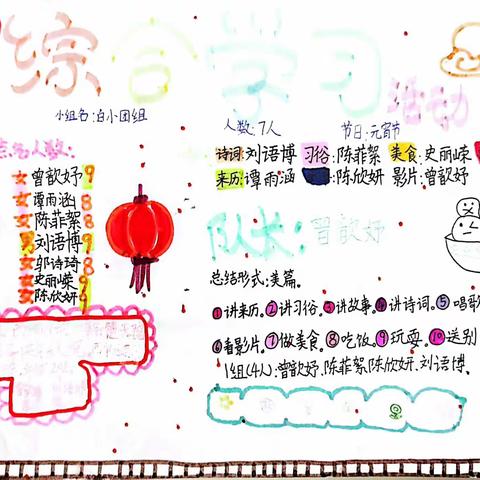 综合学习
活动
小组名:白小团组
人数:7人
节日:元宵节
名人数:
女曾歆妤9
女谭雨涵8
女陈菲絮8
男刘语博9
女邬诗琦8
女史丽嵘9
女陈欣妍9
诗词:刘语博 习俗:陈菲絮 美食:史丽嵘
来历:谭雨涵 :陈欣妍 影片:曾歆妤
队长:曾歆妤
总结形式:美篇。
①讲来历.②讲习俗.③讲故事.④讲诗词.⑤唱歌
⑥看影片.⑦做美食.⑧吃饭.⑨玩耍.⑩送别
1组(4人):曾歆妤.陈菲絮.陈欣妍.刘语博.